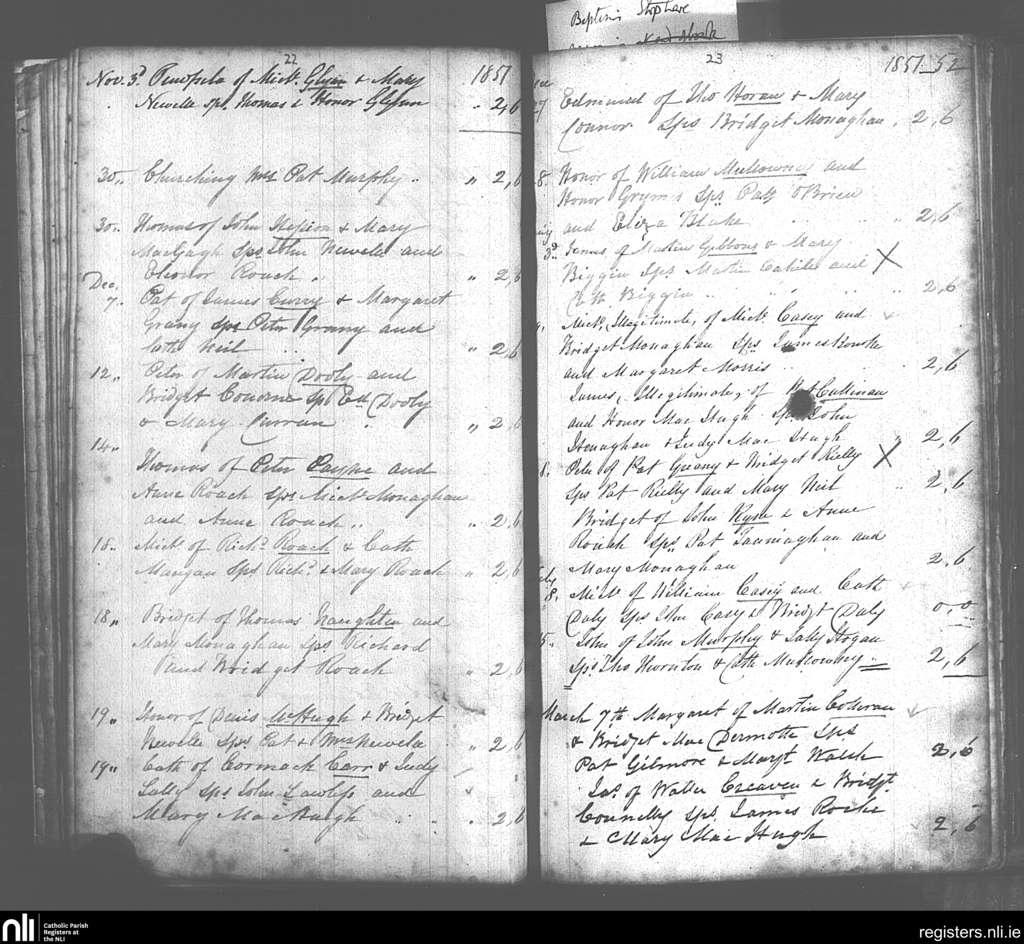 Baptis Stephere
22
Nov. 3d of Mick. Glynn & Mary 1851
Newelle sps. Thomas & Honor Glynn " 2,6
30,, Churching Mrs Pat Murphy " 2,6
30,, Thomas of John Hession & Mary
MacGagh Sps John Newele and
Eleonor Roach " 2,6
Dec.
7. Pat of James Curry & Margaret
Grany Sps Peter Granny and
Cath Neil " 2,6
12,, Peter of Martin Dooly and
Bridget Sps Dooly
& Mary Curran " 2,6
14,,
Thomas of Peter Payne and
Anne Roach Sps Mick Monaghan
and Anne Roach " 2,6
18,, Mick of Richd Roach & Cath
Mangan Sps Richd & Mary Roach " 2,6
18,, Bridget of Thomas Naughton and
Mary Monaghan Sps Richard
and Bridget Roach " 2,6
19,, Honor of Denis McHugh & Bridget
Newelle Sps Pat & Newela " 2,6
19,, Cath of Cormack Carr & Judy
Lally Sps John Lawless and
Mary Mac Hugh " 2,6
23
1851_52
27 Edmund of Tho Horan & Mary
Connor Sps Bridget Monaghan. 2,6
8. Honor of William Mullowney and
Honor Sps Patt O'Brien
and Eliza Blake 2,6
3d James of Martin Gibbons & Mary
Biggin Sps Martin Cahile and X
Cath Biggin 2,6
Mick, Illegitimate, of Mick. Casey and
Bridget Monaghan Sps James Rourke
and Margaret Morris 2,6
James, Illegitimate, of Pat Cullinan
and Honor Mac Hugh Sps John
Heneghan & Judy Mac Hugh 2,6
8. Pete of Pat Greany & Bridget Rielly X
Sps Pat Rielly and Mary Neil 2,6
Bridget of John Ryan & Anne
Roach Sps. Pat and
Mary Monaghan 2,6
8. Mick of William Casey and Cath
Daly Sps John Casey & Bridgt Daly 0,,0
5. John of John Murphy & Sally Hogan
Sps. Tho Thornton & Cath Mullowney 2,6
March 7th Margaret of Martin Coleran
& Bridget Mac Dermotte Sps
Pat Gilmore & Margt Walsh 2,6
Jas. of Walter Creaven & Bridgt.
Connelly Sps. James Roche
& Mary Mac Hugh 2,6
nli
Catholic Parish
Registers at
the NLI
registers.nli.ie